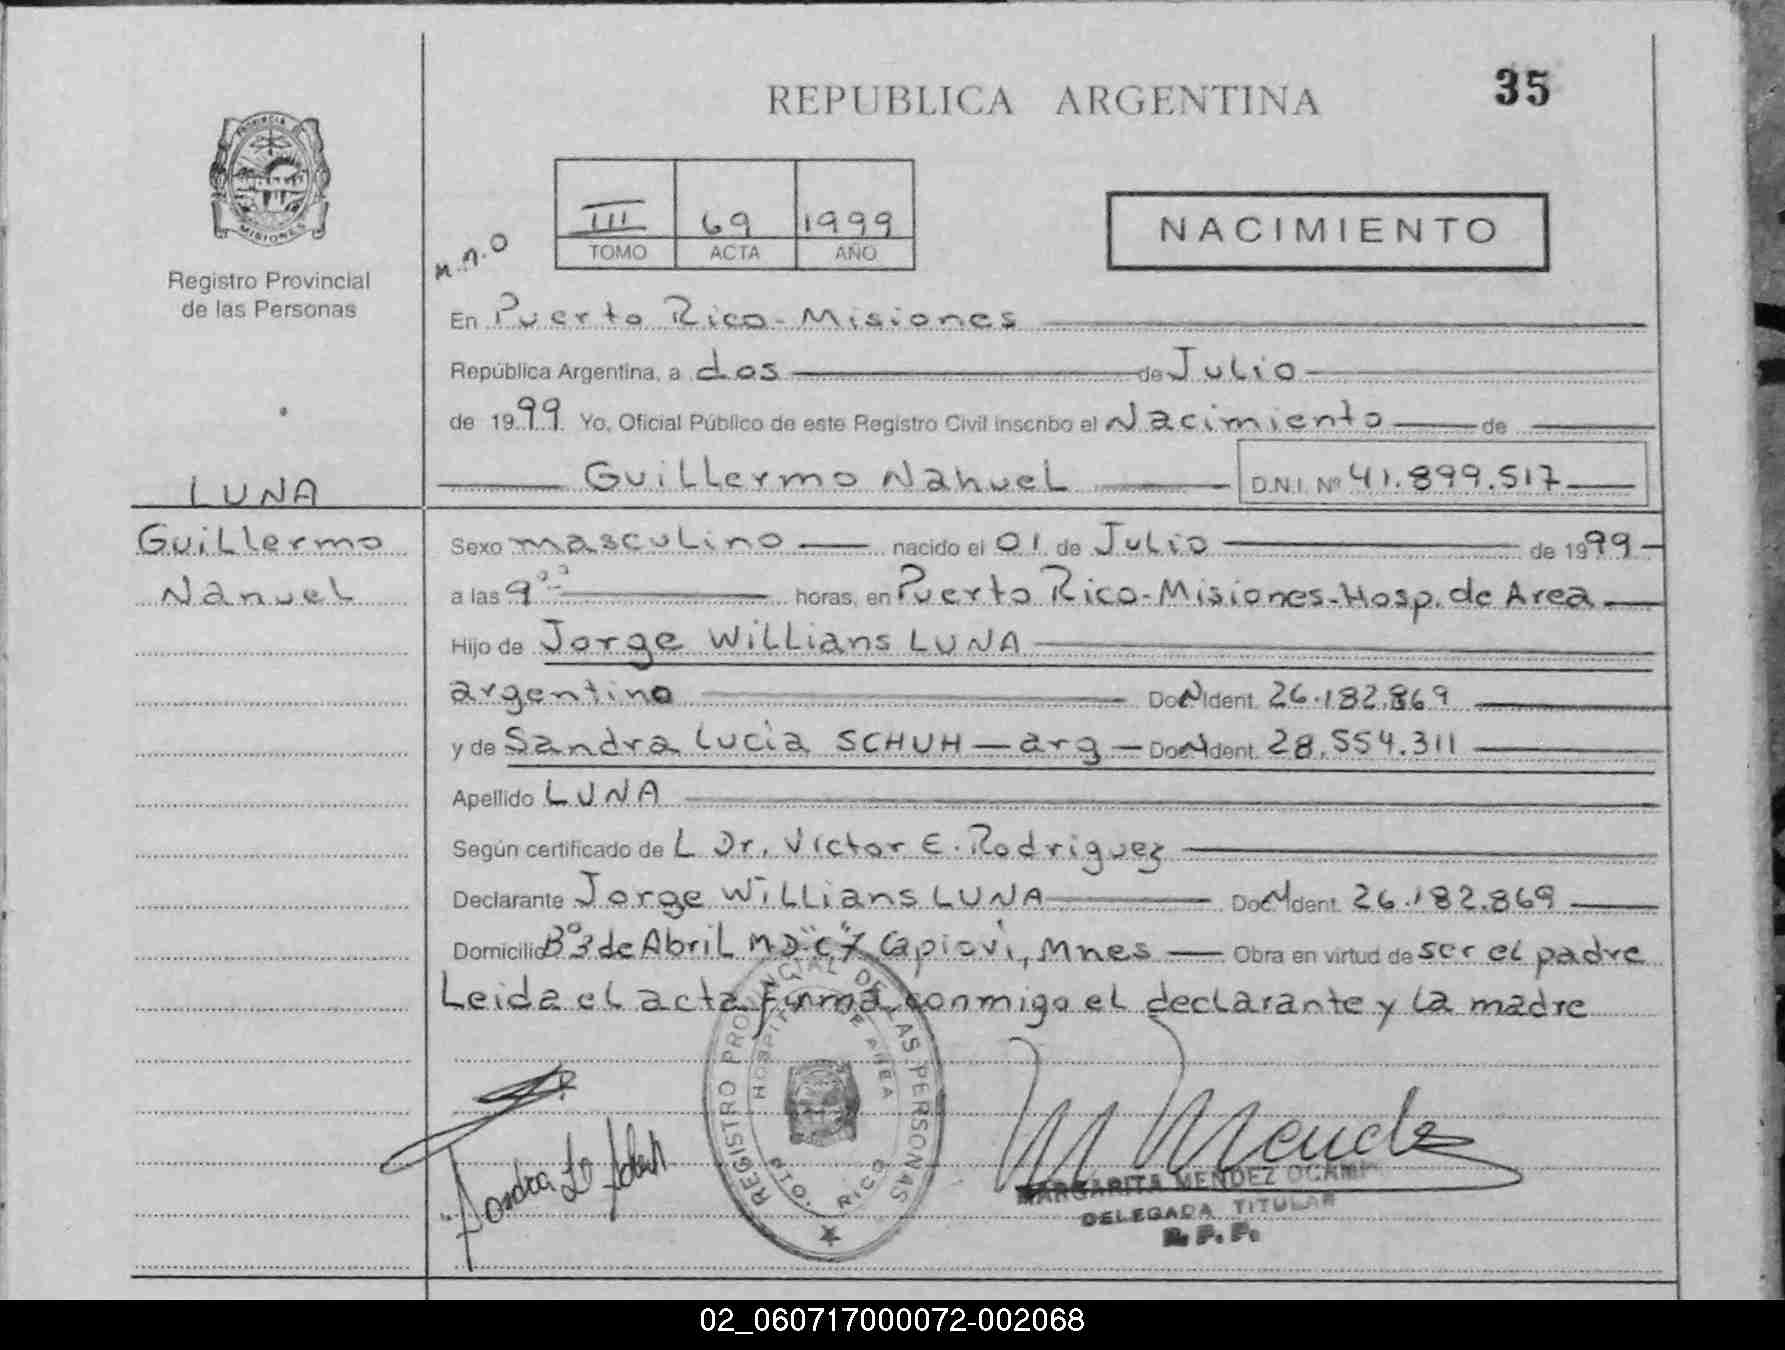 REPUBLICA ARGENTINA
35
PROVINCIA
MISIONES
Registro Provincial
de las Personas
III 69 1999
TOMO ACTA AÑO
NACIMIENTO
M.N.O
En Puerto Rico - Misiones
República Argentina, a dos de Julio
de 1999 Yo, Oficial Público de este Registro Civil inscribo el Nacimiento de
Guillermo Nahuel D.N.I. Nº 41.899.517
LUNA
Guillermo
Nahuel
Sexo masculino nacido el 01 de Julio de 1999
a las 9⁰⁰ horas, en Puerto Rico - Misiones - Hosp. de Area
Hijo de Jorge Willians LUNA
argentino Doc Ident. 26.182.869
y de Sandra Lucia SCHUH - arg - Doc Ident. 28.554.311
Apellido LUNA
Según certificado de L Dr. Victor E. Rodriguez
Declarante Jorge Willians LUNA Doc Ident. 26.182.869
Domicilio Bº 3 de Abril Mz "C" 7 Capiovi, Mnes Obra en virtud de ser el padre
Leida el acta firma conmigo el declarante y la madre
REGISTRO PROVINCIAL DE LAS PERSONAS
HOSPITAL DE AREA
PTO. RICO
Sandra L Schuh
M Mendez
MARGARITA MENDEZ OCAMPO
DELEGADA TITULAR
R. P. P.
02_060717000072-002068